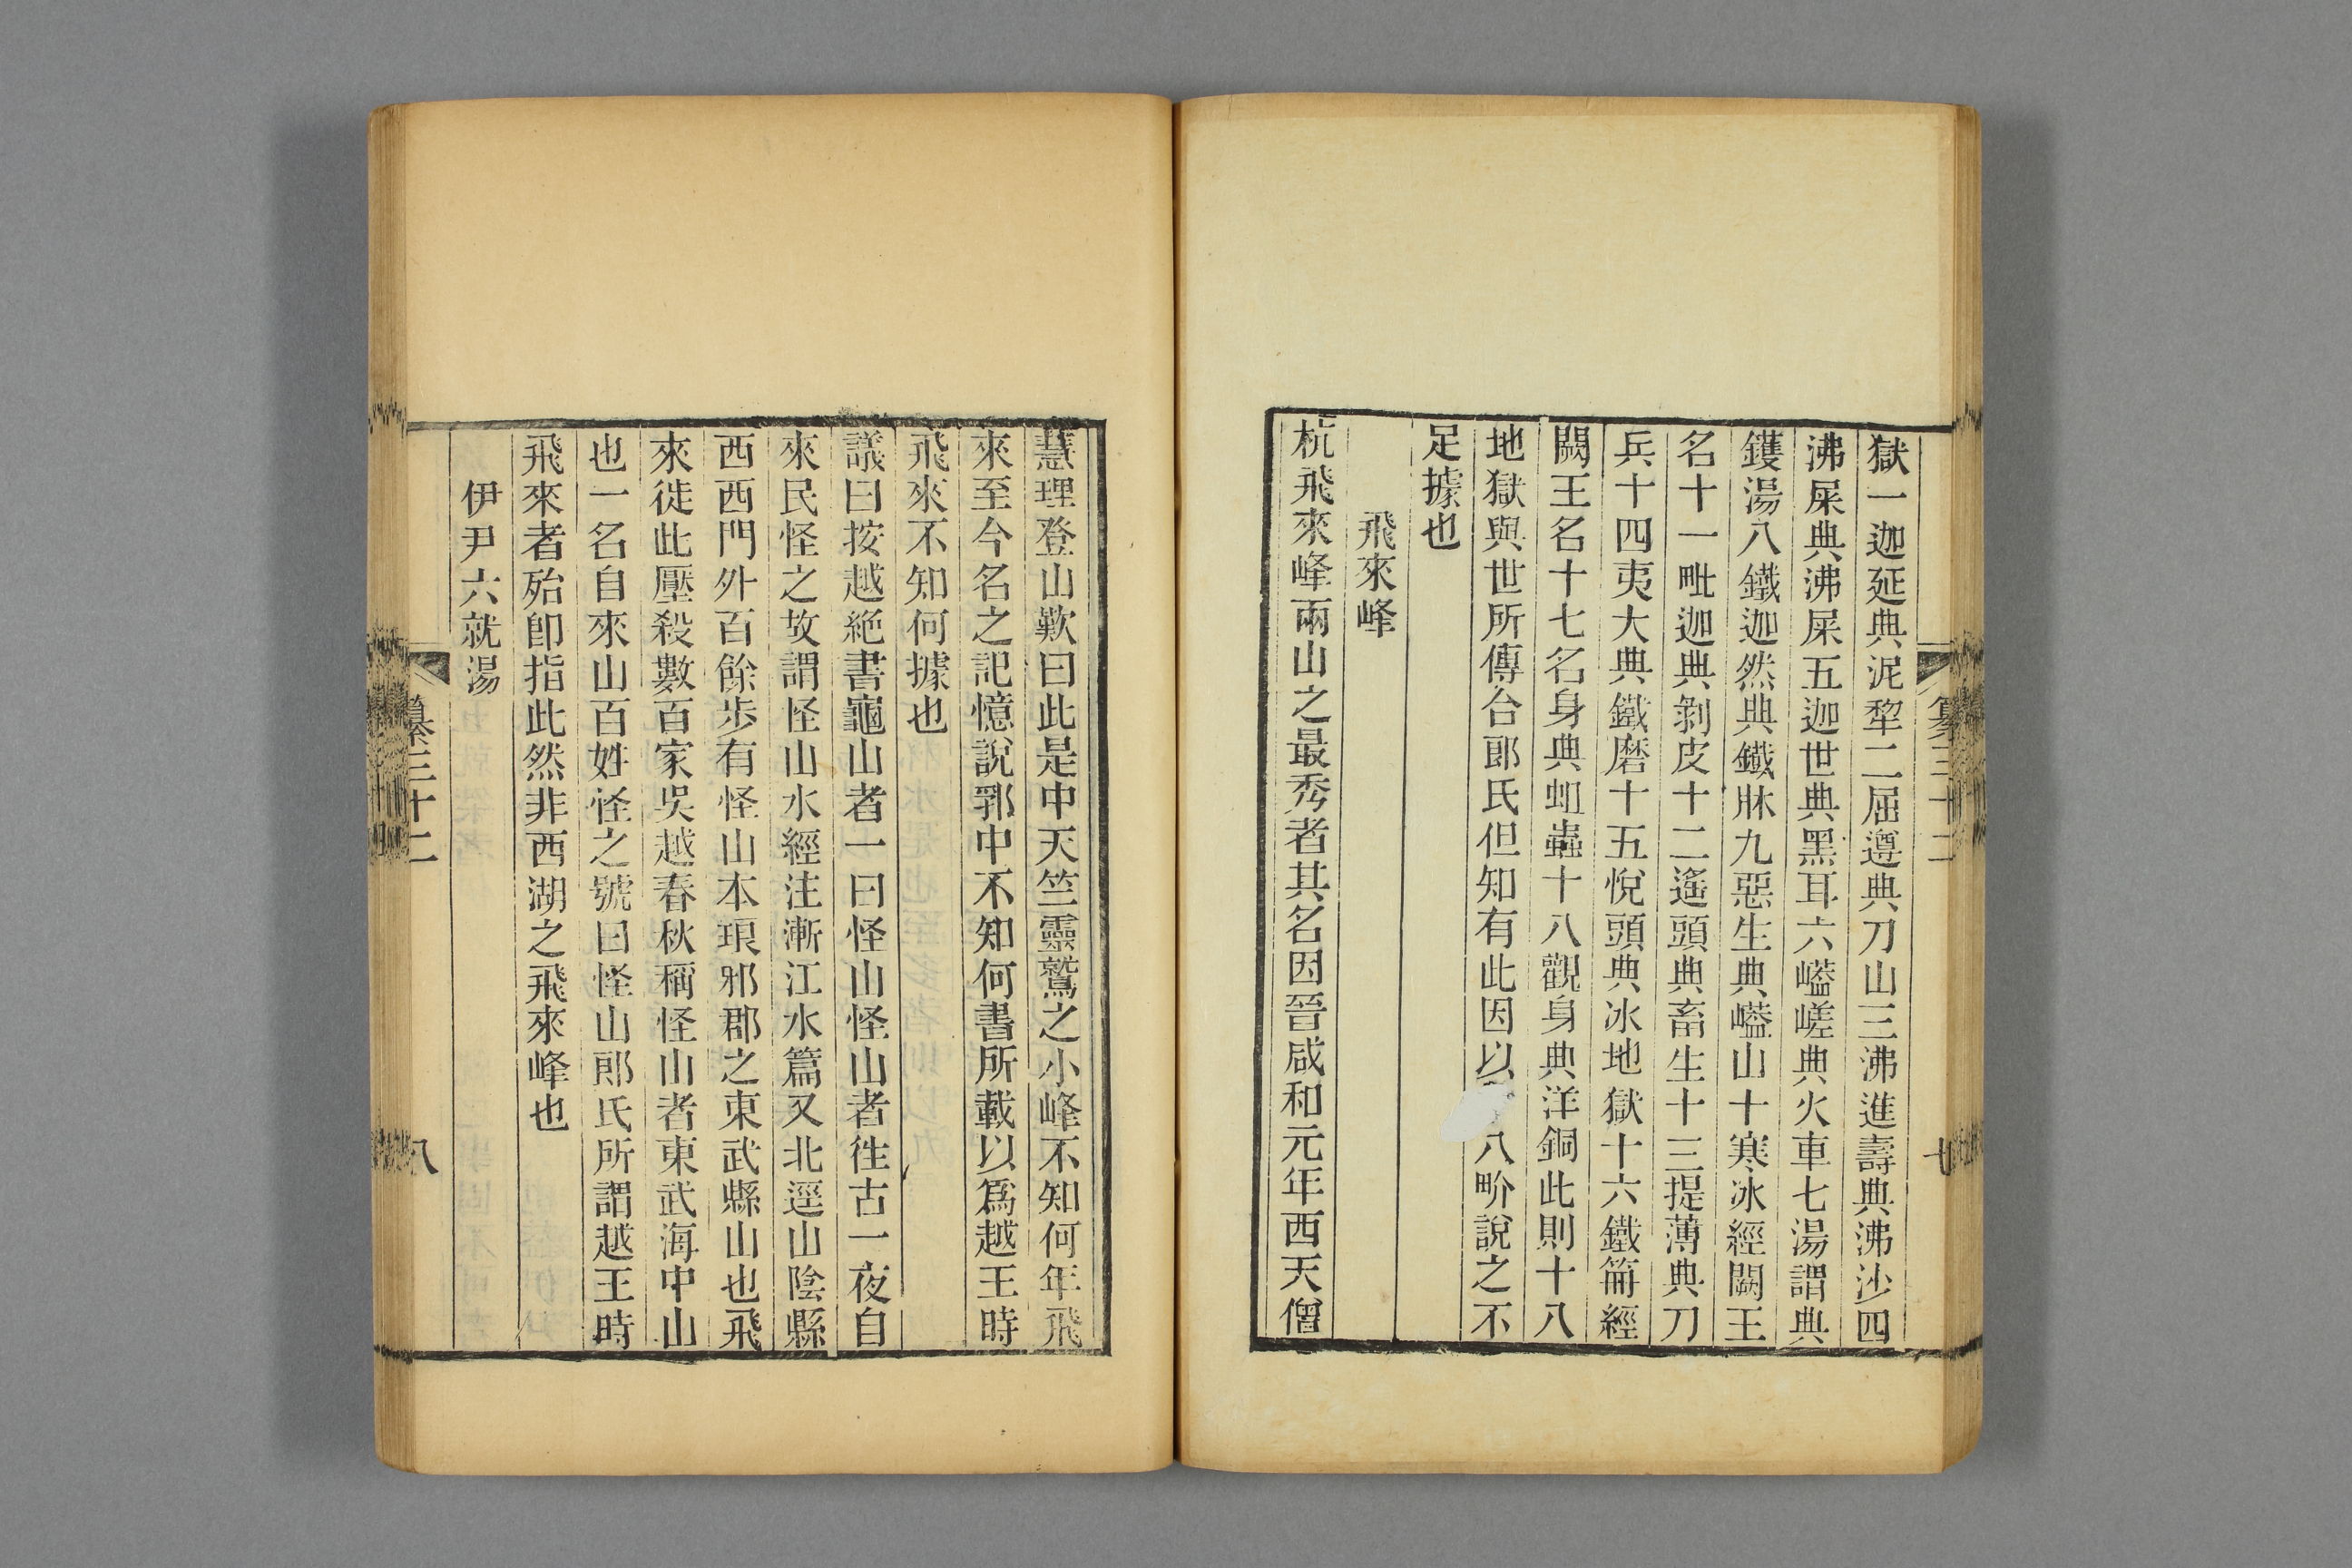 獄一迦延典泥犂二屈遵典刀山三沸進壽典沸沙四
沸屎典沸屎五迦世典黑耳六嵯嵯典火車七湯謂典
鑊湯八鐵迦然典鐵牀九惡生典山十寒冰經闕王
名十一毗迦典剝皮十二遙頭典畜生十三提薄典刀
兵十四夷大典鐵磨十五悅頭典冰地獄十六鐵篅經
闕王名十七名身典蛆蟲十八觀身典洋銅此則十八
地獄與世所傳合郎氏但知有此因以八畍說之不
足據也
飛來峰
杭飛來峰兩山之最秀者其名因晉咸和元年西天僧
纂三十二
七
慧理登山歎曰此是中天竺靈鷲之小峰不知何年飛
來至今名之記憶說郛中不知何書所載以爲越王時
飛來不知何據也
議曰按越絕書龜山者一曰怪山怪山者徃古一夜自
來民怪之故謂怪山水經注漸江水篇又北逕山陰縣
西西門外百餘步有怪山本琅邪郡之東武縣山也飛
來徙此壓殺數百家吳越春秋稱怪山者東武海中山
也一名自來山百姓怪之號曰怪山郎氏所謂越王時
飛來者殆卽指此然非西湖之飛來峰也
伊尹六就湯
纂三十二
八